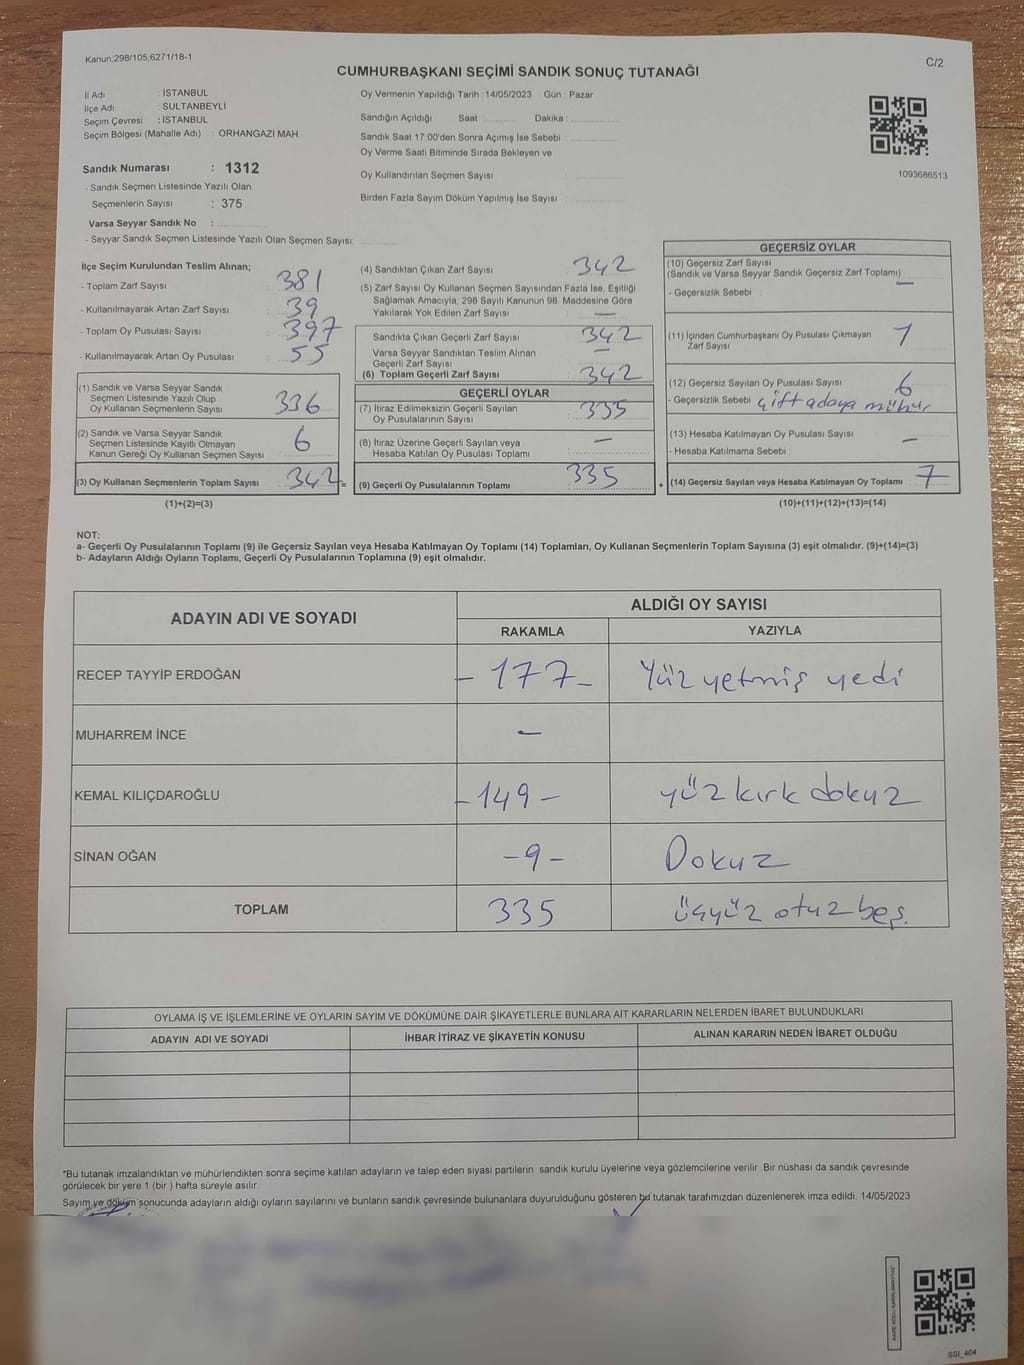 Kanun;298/105;6271/18-1
C/2
CUMHURBAŞKANI SEÇİMİ SANDIK SONUÇ TUTANAĞI
İl Adı : İSTANBUL
İlçe Adı : SULTANBEYLİ
Seçim Çevresi : İSTANBUL
Seçim Bölgesi (Mahalle Adı) : ORHANGAZİ MAH.
Sandık Numarası : 1312
- Sandık Seçmen Listesinde Yazılı Olan
Seçmenlerin Sayısı : 375
Varsa Seyyar Sandık No :
- Seyyar Sandık Seçmen Listesinde Yazılı Olan Seçmen Sayısı:
Oy Vermenin Yapıldığı Tarih : 14/05/2023 Gün : Pazar
Sandığın Açıldığı Saat : Dakika :
Sandık Saat 17:00'den Sonra Açımış İse Sebebi :
Oy Verme Saati Bitiminde Sırada Bekleyen ve
Oy Kullandırılan Seçmen Sayısı :
Birden Fazla Sayım Döküm Yapılmış İse Sayısı :
1093686513
İlçe Seçim Kurulundan Teslim Alınan;
- Toplam Zarf Sayısı : 381
- Kullanılmayarak Artan Zarf Sayısı : 39
- Toplam Oy Pusulası Sayısı : 397
- Kullanılmayarak Artan Oy Pusulası : 55
(1) Sandık ve Varsa Seyyar Sandık
Seçmen Listesinde Yazılı Olup
Oy Kullanan Seçmenlerin Sayısı : 336
(2) Sandık ve Varsa Seyyar Sandık
Seçmen Listesinde Kayıtlı Olmayan
Kanun Gereği Oy Kullanan Seçmen Sayısı : 6
(3) Oy Kullanan Seçmenlerin Toplam Sayısı : 342 =
(1)+(2)=(3)
(4) Sandıktan Çıkan Zarf Sayısı : 342
(5) Zarf Sayısı Oy Kullanan Seçmen Sayısından Fazla İse, Eşitliği
Sağlamak Amacıyla; 298 Sayılı Kanunun 98. Maddesine Göre
Yakılarak Yok Edilen Zarf Sayısı : —
Sandıkta Çıkan Geçerli Zarf Sayısı : 342
Varsa Seyyar Sandıktan Teslim Alınan
Geçerli Zarf Sayısı : —
(6) Toplam Geçerli Zarf Sayısı : 342
GEÇERLİ OYLAR
(7) İtiraz Edilmeksizin Geçerli Sayılan
Oy Pusulalarının Sayısı : 335
(8) İtiraz Üzerine Geçerli Sayılan veya
Hesaba Katılan Oy Pusulası Toplamı : —
(9) Geçerli Oy Pusulalarının Toplamı : 335 +
GEÇERSİZ OYLAR
(10) Geçersiz Zarf Sayısı
(Sandık ve Varsa Seyyar Sandık Geçersiz Zarf Toplamı) : —
- Geçersizlik Sebebi :
(11) İçinden Cumhurbaşkanı Oy Pusulası Çıkmayan
Zarf Sayısı : 1
(12) Geçersiz Sayılan Oy Pusulası Sayısı : 6
- Geçersizlik Sebebi : çift adaya mühür
(13) Hesaba Katılmayan Oy Pusulası Sayısı : —
- Hesaba Katılmama Sebebi :
(14) Geçersiz Sayılan veya Hesaba Katılmayan Oy Toplamı : 7
(10)+(11)+(12)+(13)=(14)
NOT:
a- Geçerli Oy Pusulalarının Toplamı (9) ile Geçersiz Sayılan veya Hesaba Katılmayan Oy Toplamı (14) Toplamları, Oy Kullanan Seçmenlerin Toplam Sayısına (3) eşit olmalıdır. (9)+(14)=(3)
b- Adayların Aldığı Oyların Toplamı, Geçerli Oy Pusulalarının Toplamına (9) eşit olmalıdır.
ADAYIN ADI VE SOYADI ALDIĞI OY SAYISI
RAKAMLA YAZIYLA
RECEP TAYYİP ERDOĞAN - 177 - Yüz yetmiş yedi
MUHARREM İNCE —
KEMAL KILIÇDAROĞLU - 149 - yüz kırk dokuz
SİNAN OĞAN - 9 - Dokuz
TOPLAM 335 üçyüz otuz beş.
OYLAMA İŞ VE İŞLEMLERİNE VE OYLARIN SAYIM VE DÖKÜMÜNE DAİR ŞİKAYETLERLE BUNLARA AİT KARARLARIN NELERDEN İBARET BULUNDUKLARI
ADAYIN ADI VE SOYADI İHBAR İTİRAZ VE ŞİKAYETİN KONUSU ALINAN KARARIN NEDEN İBARET OLDUĞU
*Bu tutanak imzalandıktan ve mühürlendikten sonra seçime katılan adayların ve talep eden siyasi partilerin sandık kurulu üyelerine veya gözlemcilerine verilir. Bir nüshası da sandık çevresinde
görülecek bir yere 1 (bir ) hafta süreyle asılır.
Sayım ve döküm sonucunda adayların aldığı oyların sayılarını ve bunların sandık çevresinde bulunanlara duyurulduğunu gösteren bu tutanak tarafımızdan düzenlenerek imza edildi. 14/05/2023
SSI_404